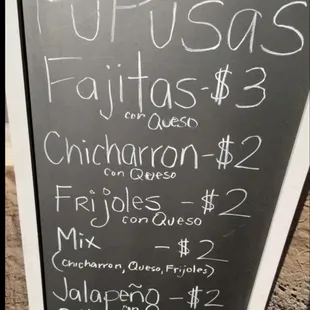 PUPUSAS
Fajitas-$3
con Queso
Chicharron-$2
con Queso
FRijoles -$2
con Queso
Mix -$2
(chicharron, Queso, Frijoles)
Jalapeño -$2